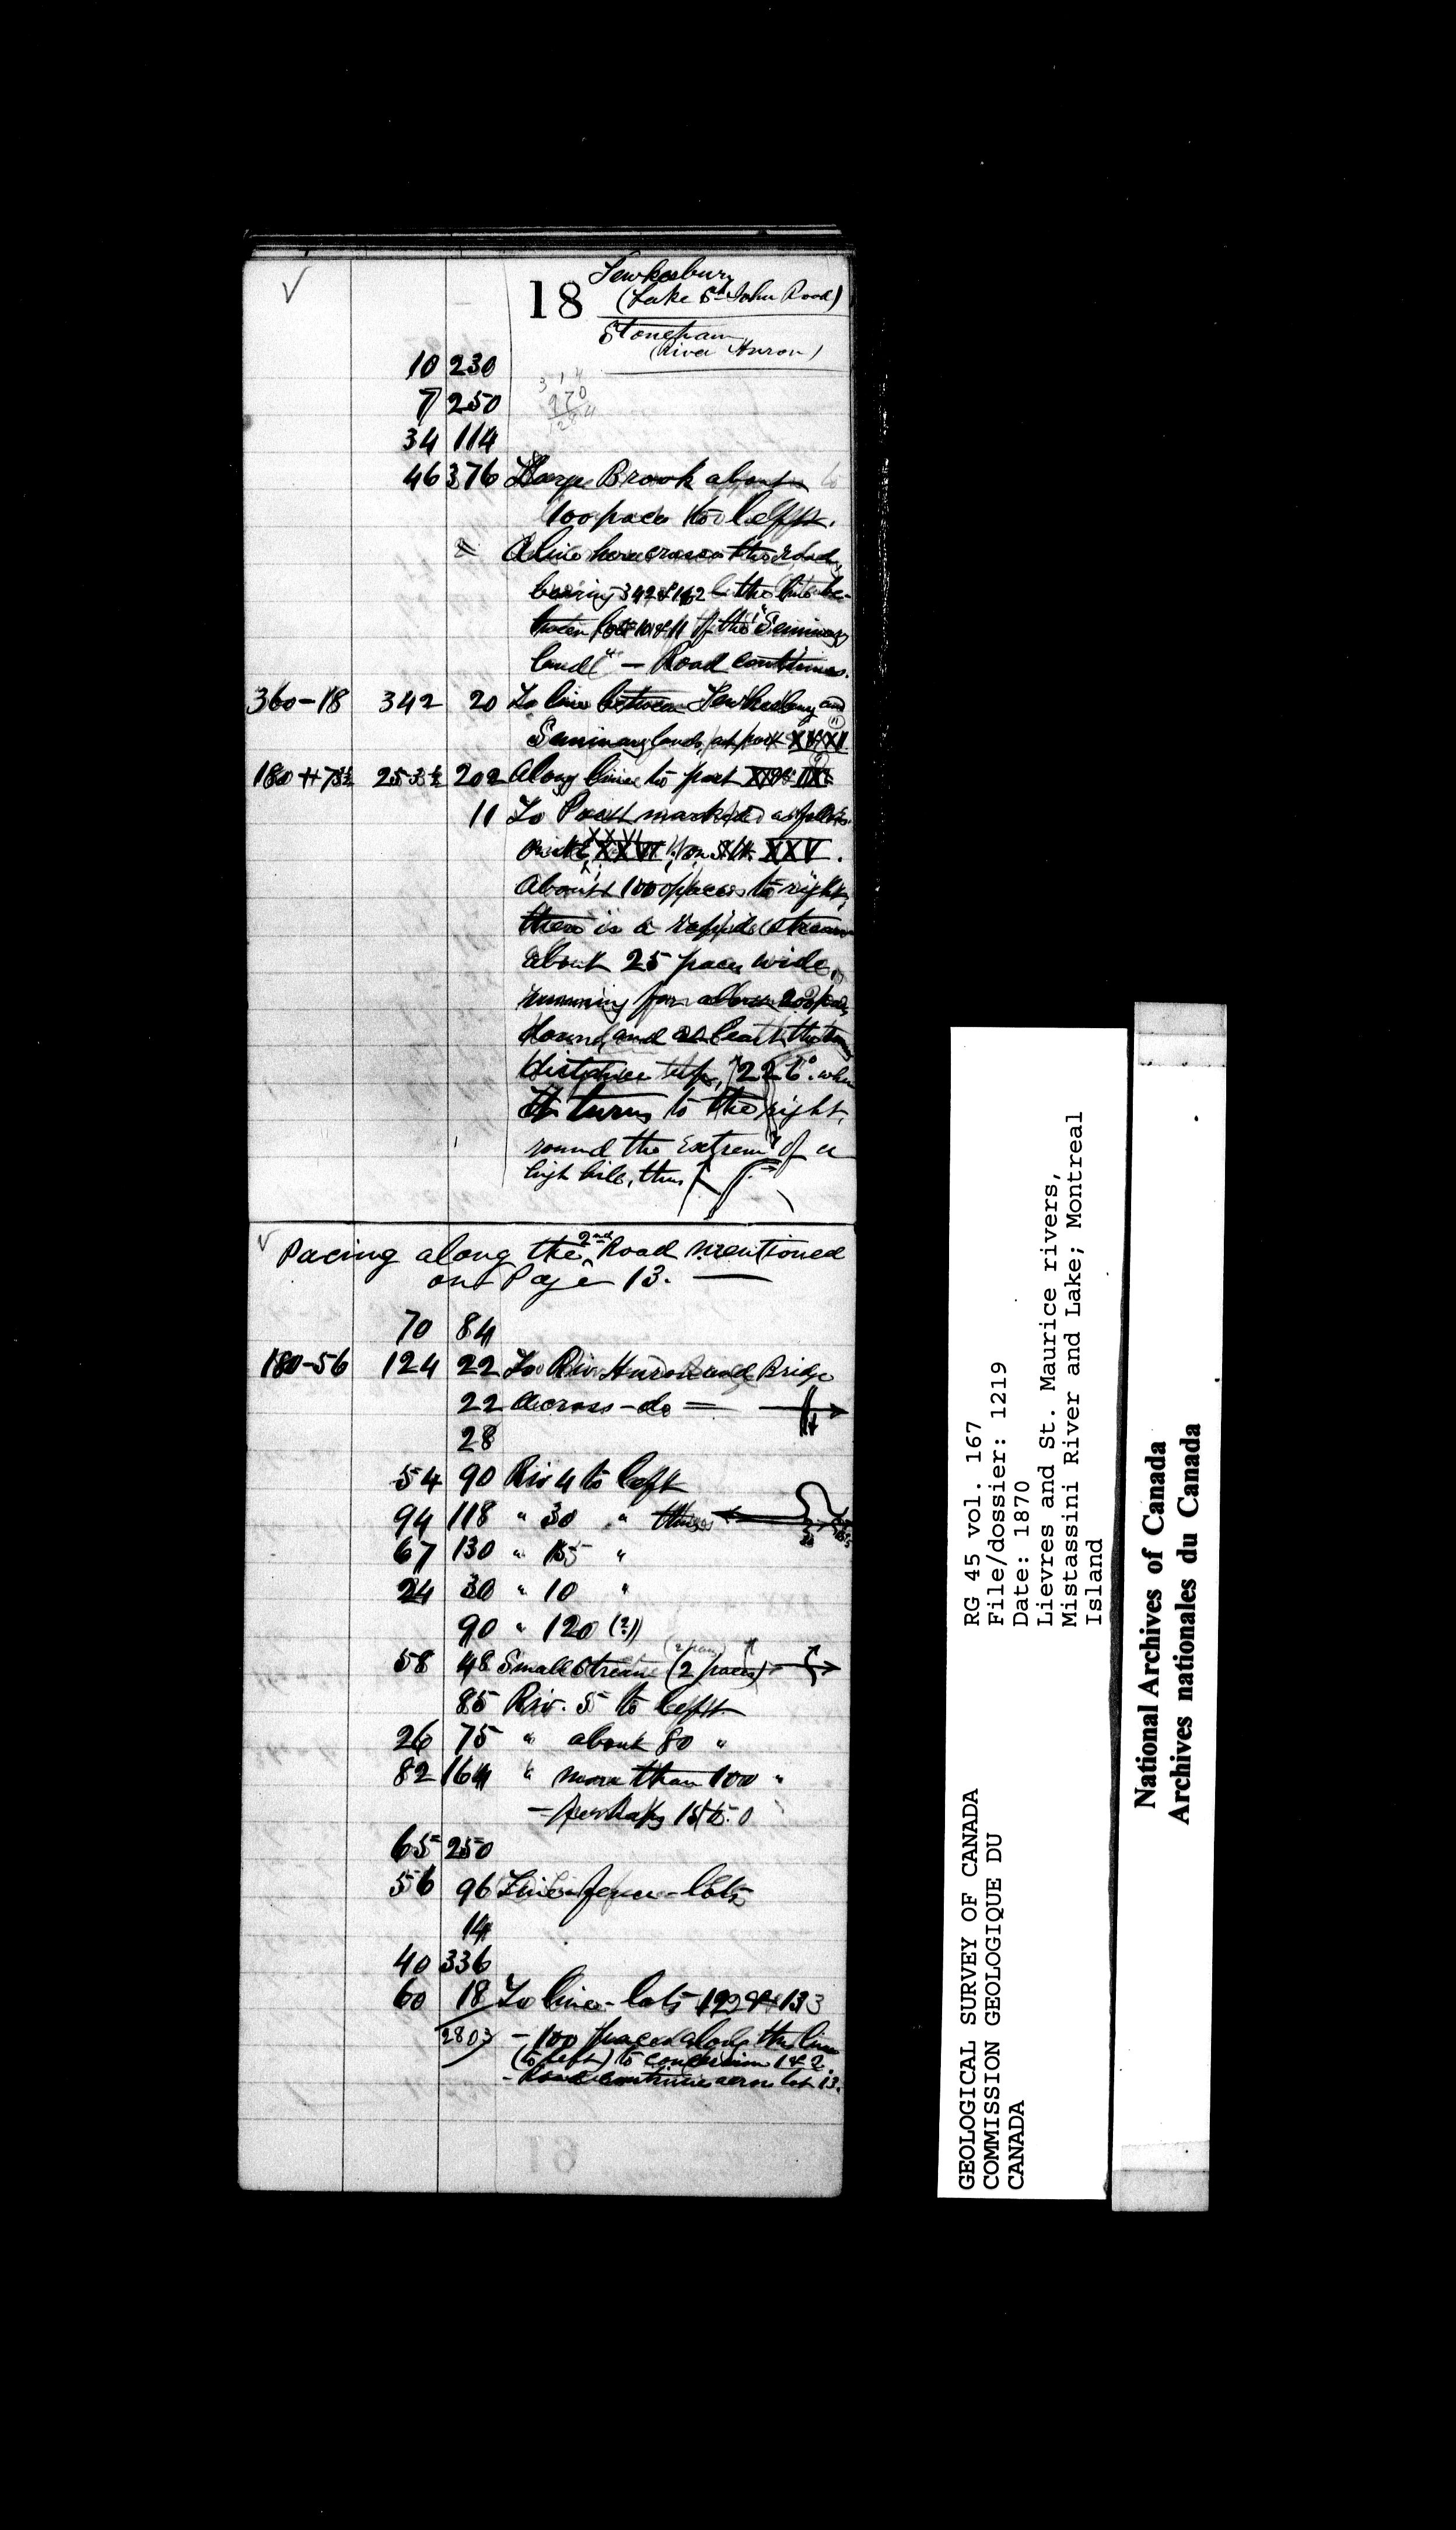 18 Tewkesbury
(Lake St John Road)
Stoneham
(River Huron)
10 230
7 250
34 114
46 376 Large Brook about
100 paces to left.
A line here crosses the road,
bearing 342 & 162 the line be-
tween lots 10 & 11 of the "Seminary
land" — Road continues.
360-18 342 20 To line between Tewkesbury and
Seminary lands, at post
180 + 73½ 253½ 202 Along line to post
11 To Post marked as follows
XXVI on XXV.
About 100 paces to right,
there is a rapid stream
about 25 paces wide,
running for about 200 paces
down, and at least the same
distance up, 226°. when
It turns to the right,
round the Extrem'y of a
high hill, thus
Pacing along the 2nd Road mentioned
on Page 13. —
70 84
180-56 124 22 To Riv. Huron and Bridge
22 across - do =
28
54 90 Riv 4 to left
94 118 " 30 " thus
67 130 " 15 "
24 30 " 10 "
90 " 120 (?)
58 48 Small Stream (2 paces)
85 Riv. 5 to left
26 75 " about 80 "
82 164 " more than 100 "
— perhaps 150
65 250
56 96 Line fence - lots
14
40 336
60 18 To line - lots 12 & 13
2803 - 100 paces along the line
(to left) to concession 1 & 2.
- Road continues across lot 13.
GEOLOGICAL SURVEY OF CANADA
COMMISSION GEOLOGIQUE DU
CANADA
RG 45 vol. 167
File/dossier: 1219
Date: 1870
Lievres and St. Maurice rivers,
Mistassini River and Lake; Montreal
Island
National Archives of Canada
Archives nationales du Canada